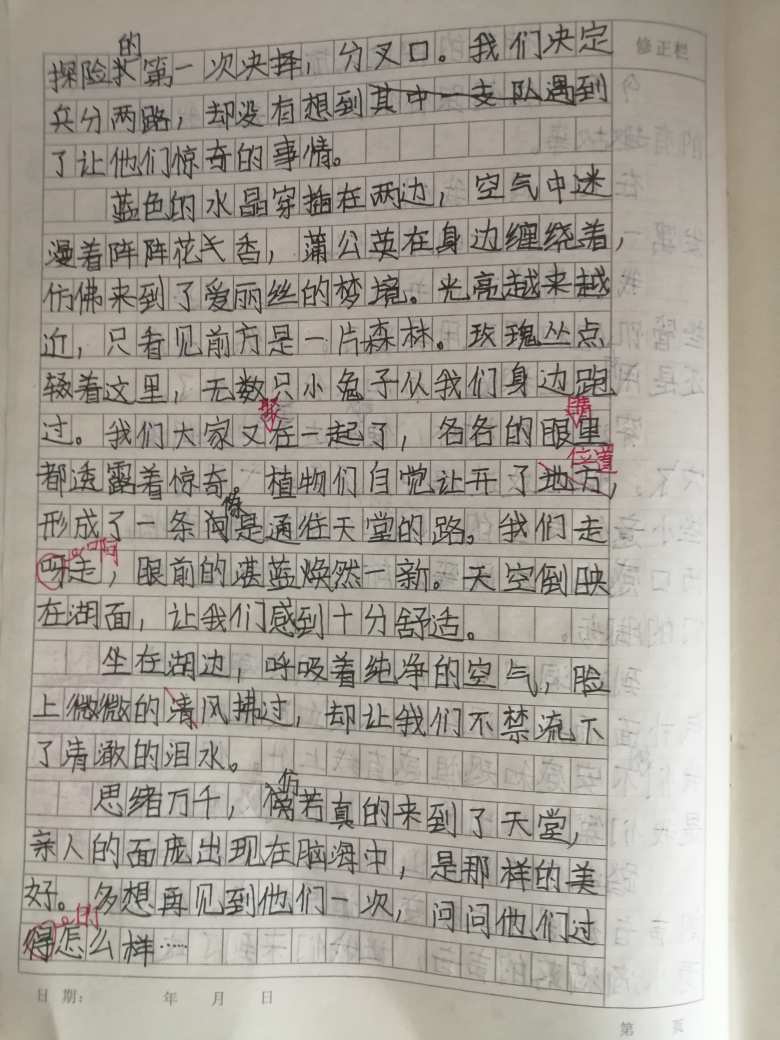 修正栏
的
探险第一次决择，分叉口。我们决定
兵分两路，却没有想到其中一支队遇到
了让他们惊奇的事情。
蓝色的水晶穿插在两边，空气中迷
漫着阵阵花气香，蒲公英在身边缠绕着，
仿佛来到了爱丽丝的梦境。光亮越来越
近，只看见前方是一片森林。玫瑰丛点
辍着这里，无数只小兔子从我们身边跑
过。我们大家又聚在一起了，各各的眼睛里
都透露着惊奇。植物们自觉让开了地方，
位置
形成了一条像是通往天堂的路。我们走
呀走，眼前的湛蓝焕然一新。天空倒映
啊
在湖面，让我们感到十分舒适。
坐在湖边，呼吸着纯净的空气，脸
上微微的清风拂过，却让我们不禁流下
了清澈的泪水。
思绪万千，仿若真的来到了天堂，
亲人的面庞出现在脑海中，是那样的美
好。多想再见到他们一次，问问他们过
的
得怎么样……
日期： 年 月 日
第 页